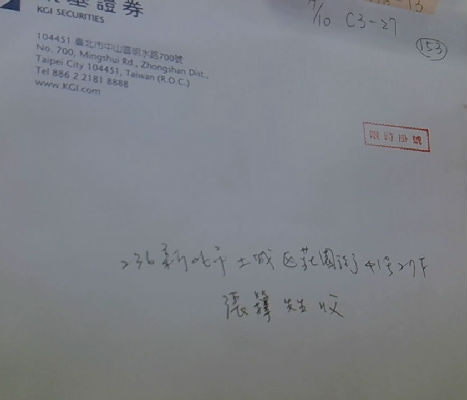 基證券
KGI SECURITIES
104451 臺北市中山區明水路700號
No. 700, Mingshui Rd., Zhongshan Dist.,
Taipei City 104451, Taiwan (R.O.C.)
Tel 886 2 2181 8888
www.KGI.com
/10 C3-27
153
限時掛號
236新北市土城区莊園街41号27F
張 先生 收